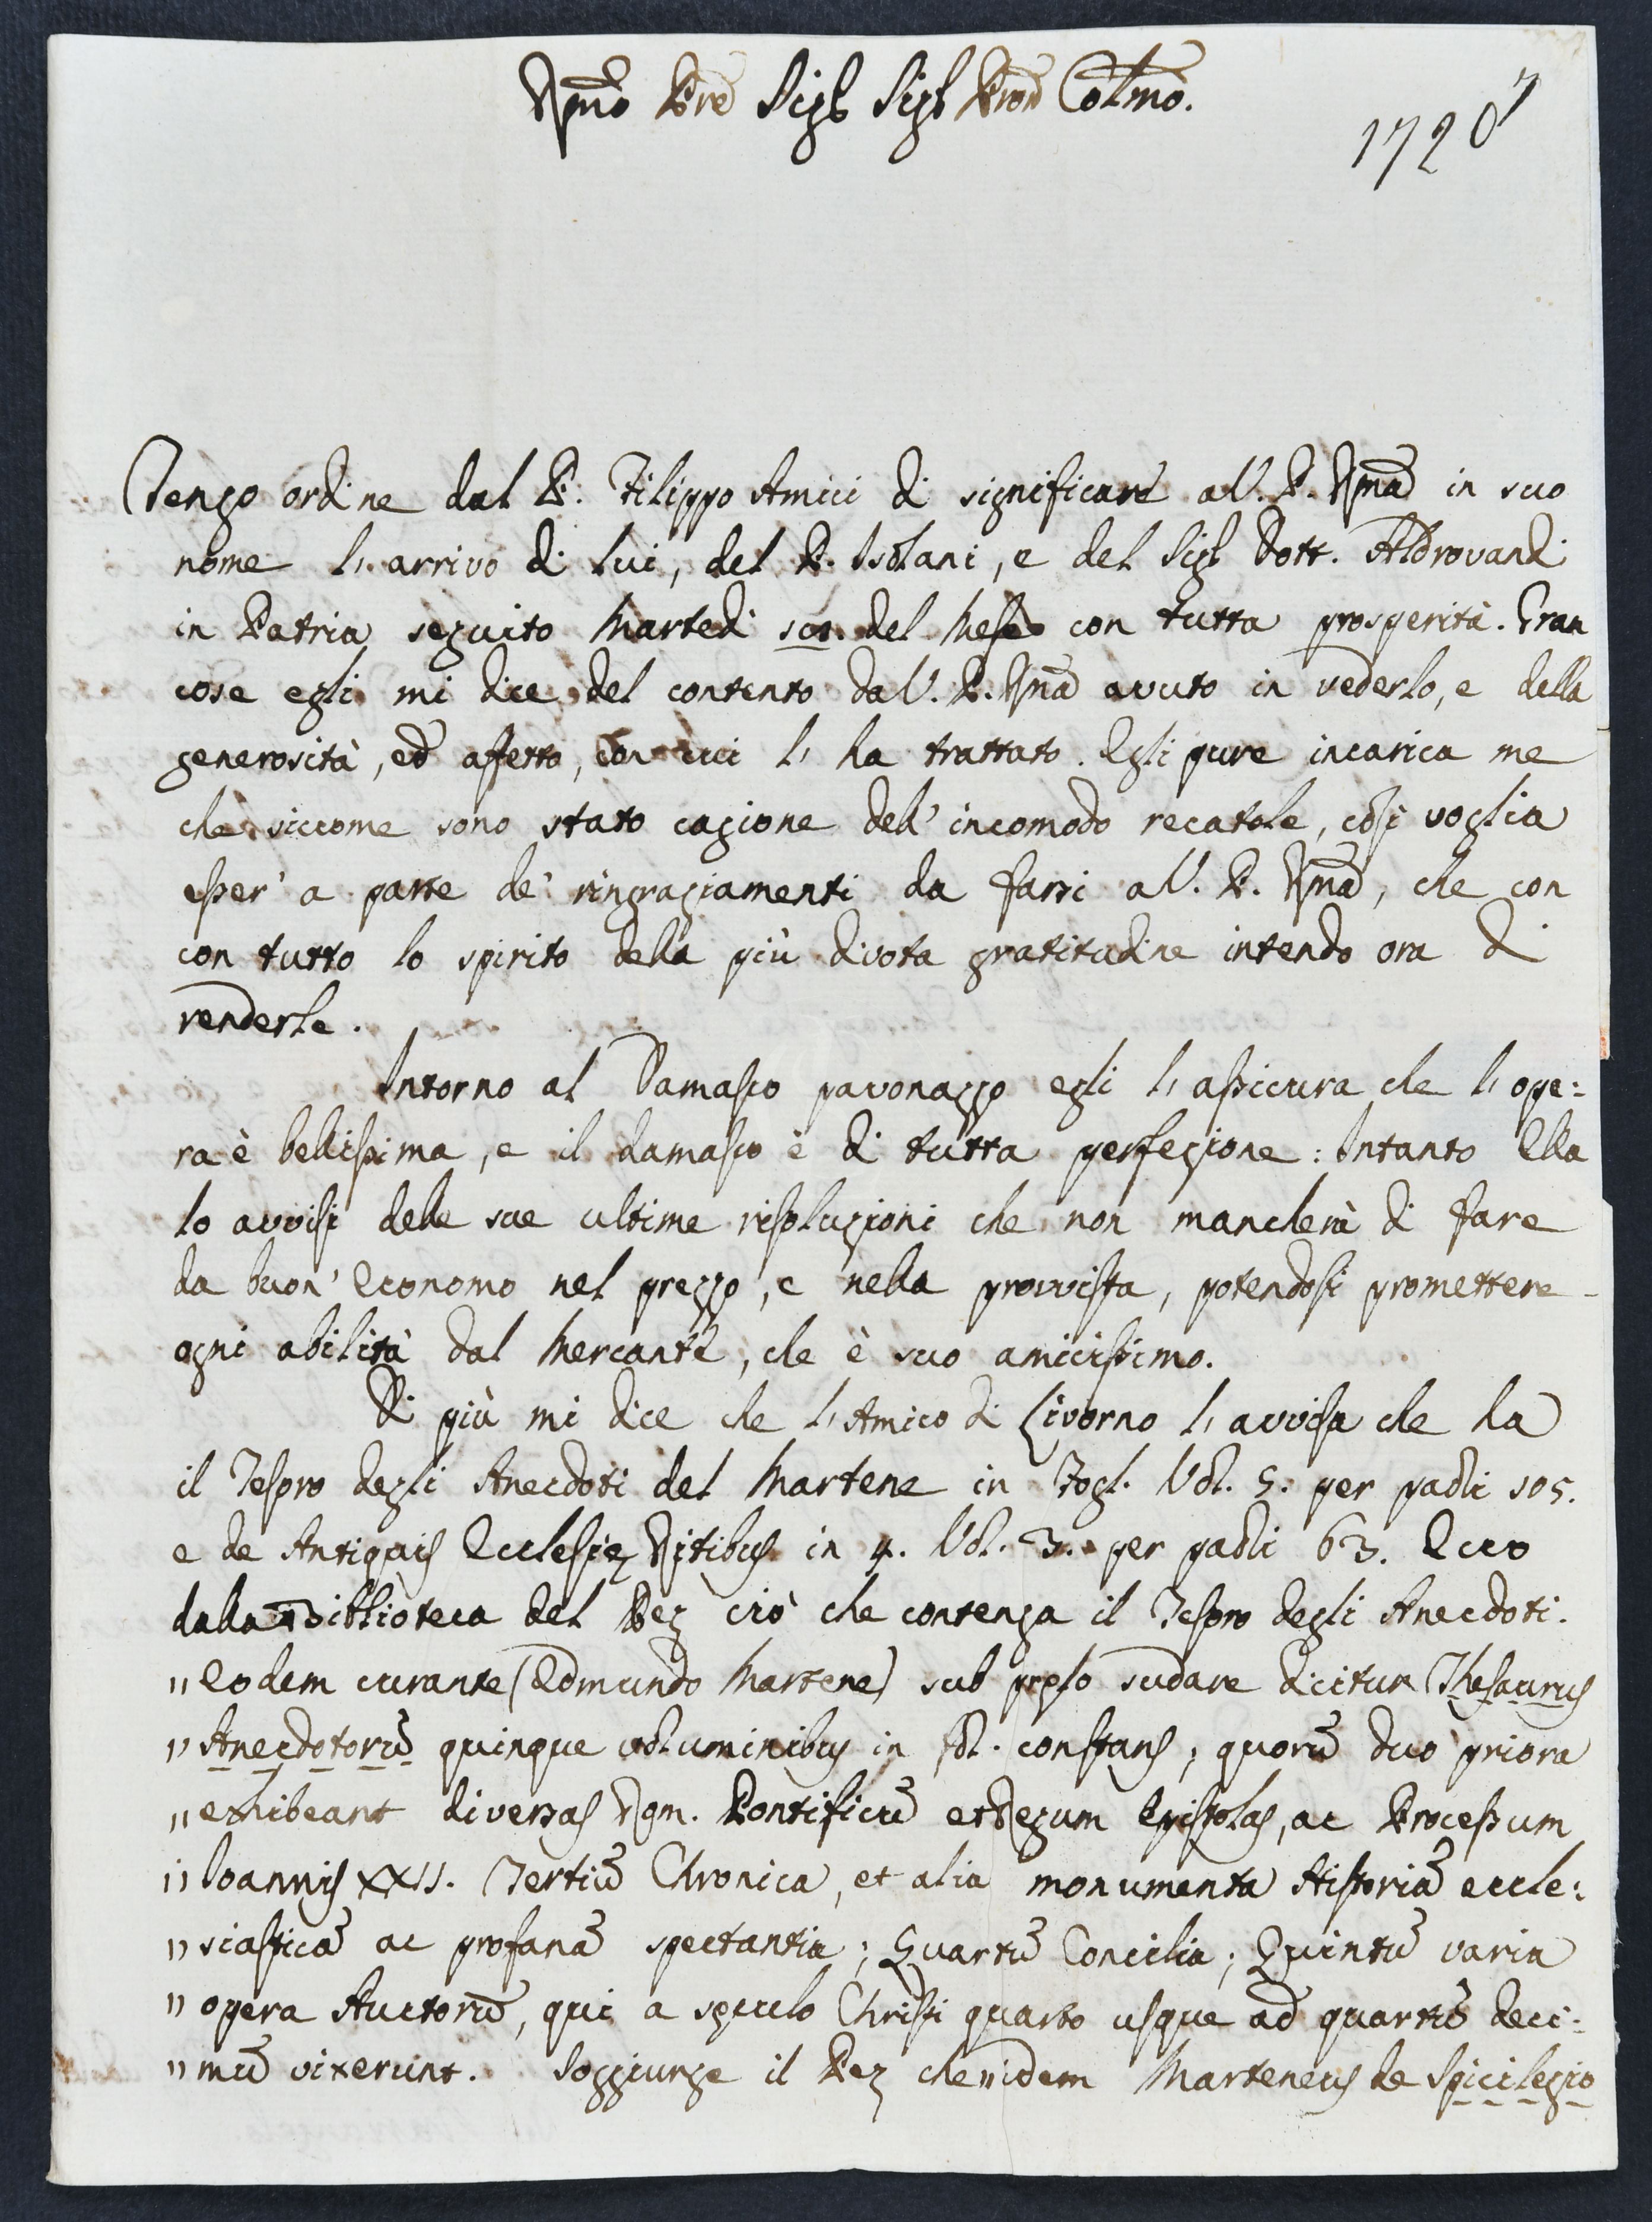 Rmo Pre Sigr Sigr Pron Colmo.
1720
Tengo ordine dal P. Filippo Amici di significare a V. P. Rma in suo
nome l'arrivo di lui, del P. Isolani, e del Sigr Dott. Aldrovandi
in Patria seguito Martedì del Mese con tutta prosperità. Gran
cose egli mi dice del contento da V. P. Rma avuto in vederlo, e della
generosità, ed affetto, con cui l'ha trattato. Egli pure incarica me
che siccome sono stato cagione dell'incomodo recatole, così voglia
esser' a parte de' ringraziamenti da farsi a V. P. Rma, che con
con tutto lo spirito della più divota gratitudine intendo ora di
renderle.
Intorno al Damasco pavonazzo egli l'assicura che l'ope:
ra è bellissima, e il damasco è di tutta perfezione: Intanto Ella
lo avvisi delle sue ultime risoluzioni che non mancherà di fare
da buon' Economo nel prezzo, e nella provvista, potendosi promettere
ogni abilità dal Mercante, che è suo amicissimo.
Di più mi dice che l'Amico di Livorno l'avvisa che ha
il Tesoro degli Anecdoti del Martene in Fogl. Vol. 5. per paoli 105.
e de Antiquis Ecclesię Ritibus in 4. Vol. 3. per paoli 63. Ecco
dalla Biblioteca del Pez ciò che contenga il Tesoro degli Anecdoti.
" Eodem curante (Edmundo Martene) sub pręlo sudare dicitur Thesaurus
" Anecdotorū quinque voluminibus in fol. constans; quorū duo priora
" exhibeant diversas Rom. Pontificū et Regum Epistolas, ac Processum
" Ioannis XXII. Tertiū Chronica, et alia monumenta Historiā eccle:
" siasticā ac profanā spectantia; Quartū Concilia; Quintū varia
" opera Auctorū, qui a sęculo Christi quarto usque ad quartū deci:
" mū vixerunt. Soggiunge il Pez che " idem Marteneus de Spicilegio